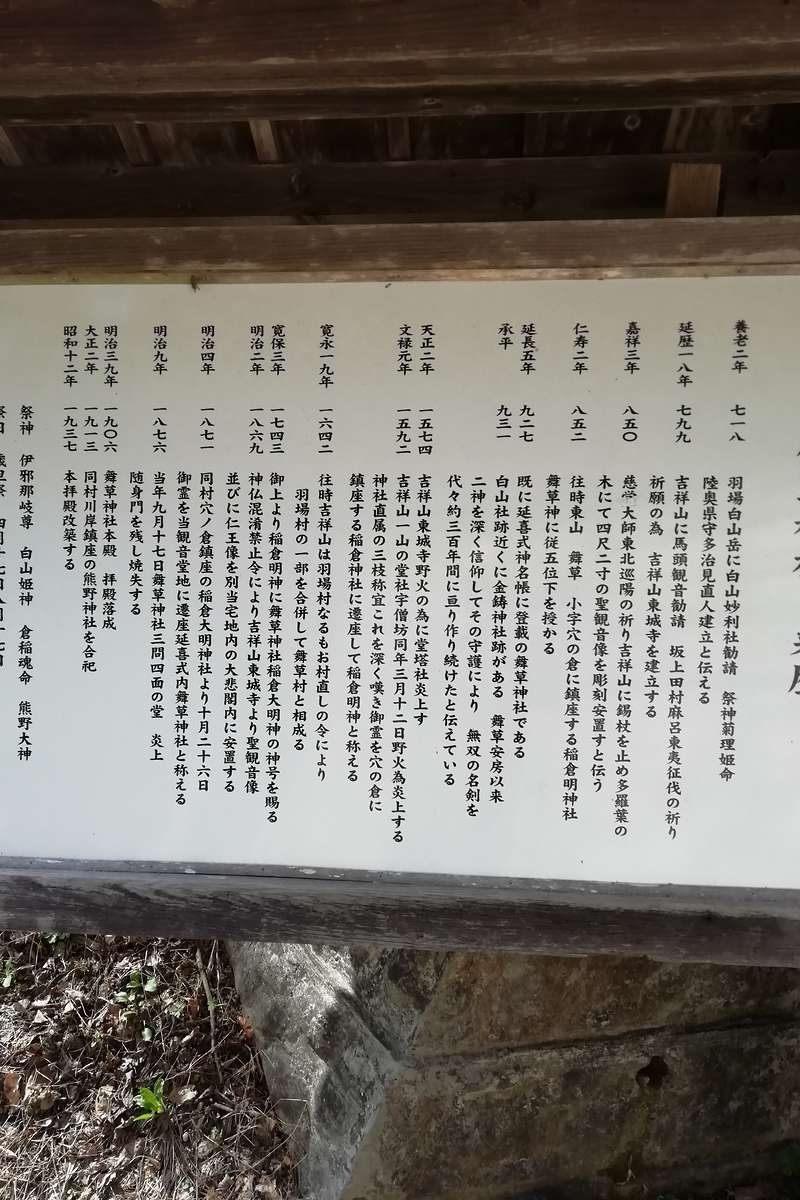 養老二年 七一八 羽場白山岳に白山妙利社勧請 祭神菊理姫命
陸奥県守多治見直人建立と伝える
延歴一八年 七九九 吉祥山に馬頭観音勧請 坂上田村麻呂東夷征伐の祈り
祈願の為 吉祥山東城寺を建立する
嘉祥三年 八五〇 慈学大師東北巡陽の祈り吉祥山に錫杖を止め多羅葉の
木にて四尺二寸の聖観音像を彫刻安置すと伝う
仁寿二年 八五二 往時東山 舞草 小字穴の倉に鎮座する稲倉明神社
舞草神に従五位下を授かる
延長五年 九二七 既に延喜式神名帳に登載の舞草神社である
承平 九三一 白山社跡近くに金鋳神社跡がある 舞草安房以来
二神を深く信仰してその守護により 無双の名剣を
代々約三百年間に亘り作り続けたと伝えている
天正二年 一五七四 吉祥山東城寺野火の為に堂塔社炎上す
文禄元年 一五九二 吉祥山一山の堂社宇僧坊同年三月十二日野火為炎上する
神社直属の三枝称宜これを深く嘆き御霊を穴の倉に
鎮座する稲倉神社に遷座して稲倉明神と称える
寛永一九年 一六四二 往時吉祥山は羽場村なるもお村直しの令により
羽場村の一部を合併して舞草村と相成る
寛保三年 一七四三 御上より稲倉明神に舞草神社稲倉大明神の神号を賜る
明治二年 一八六九 神仏混淆禁止令により吉祥山東城寺より聖観音像
並びに仁王像を別当宅地内の大悲閣内に安置する
明治四年 一八七一 同村穴ノ倉鎮座の稲倉大明神社より十月二十六日
御霊を当観音堂地に遷座延喜式内舞草神社と称える
明治九年 一八七六 当年九月十七日舞草神社三間四面の堂 炎上
随身門を残し焼失する
明治三九年 一九〇六 舞草神社本殿 拝殿落成
大正二年 一九一三 同村川岸鎮座の熊野神社を合祀
昭和十二年 一九三七 本拝殿改築する
祭神 伊邪那岐尊 白山姫神 倉稲魂命 熊野大神